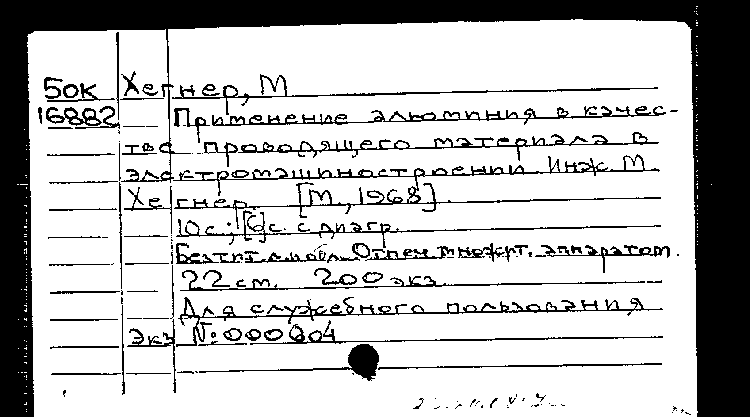 Бок Хегнер, М
16882 Применение алюминия в качес-
тве проводящего материала в
электромашиностроении Инж. М.
Хегнер. [М., 1968].
10 с.; [6] с. с диагр.
Без тит. л. и обл. Отпеч. множит. аппаратом.
22 см. 200 экз.
Для служебного пользования
Экз № 000604